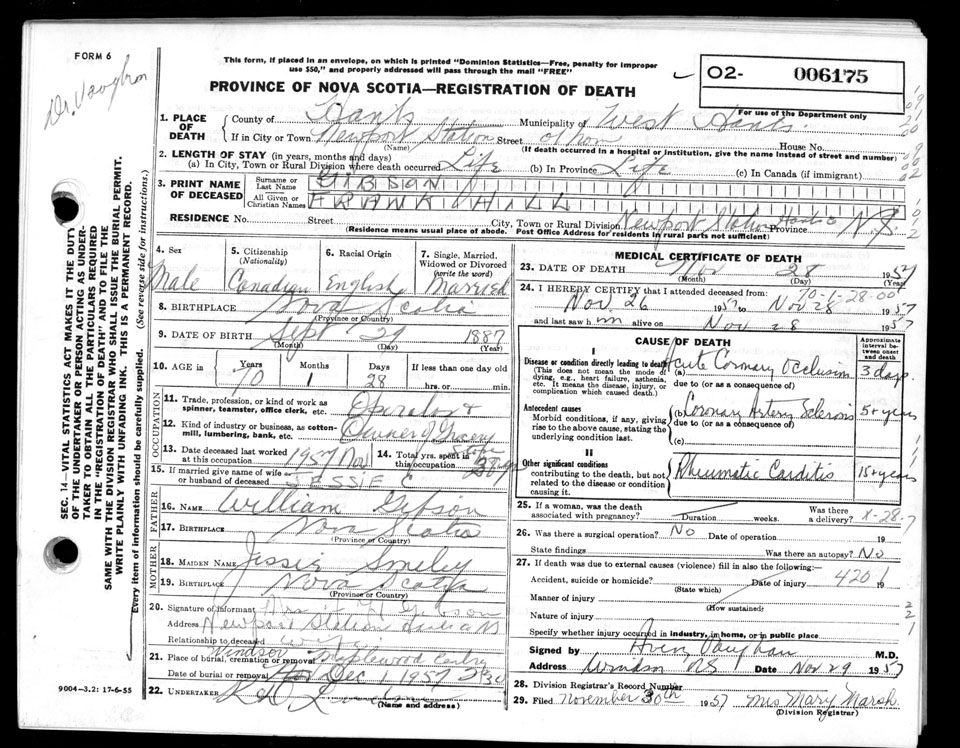 FORM 6
Dr. Vaughan
This form, if placed in an envelope, on which is printed "Dominion Statistics—Free, penalty for improper
use $50," and properly addressed will pass through the mail "FREE"
PROVINCE OF NOVA SCOTIA—REGISTRATION OF DEATH
02- 006175
For use of the Department only
1. PLACE OF DEATH
County of Hants Municipality of West Hants
If in City or Town Newport Station Street at home House No.
(Name) (If death occurred in a hospital or institution, give the name instead of street and number)
2. LENGTH OF STAY (in years, months and days)
(a) In City, Town or Rural Division where death occurred Life (b) In Province Life (c) In Canada (if immigrant)
3. PRINT NAME OF DECEASED
Surname or Last Name GIBSON
All Given or Christian Names FRANK HILL
RESIDENCE No. Street City, Town or Rural Division Newport Stn. Hants Co Province N.S.
(Residence means usual place of abode. Post Office Address for residents in rural parts not sufficient)
4. Sex Male
5. Citizenship (Nationality) Canadian
6. Racial Origin English
7. Single, Married, Widowed or Divorced (write the word) Married
8. BIRTHPLACE Nova Scotia
(Province or Country)
9. DATE OF BIRTH Sept 29 1887
(Month) (Day) (Year)
10. AGE in Years 70 Months 1 Days 28 If less than one day old
hrs. or min.
OCCUPATION
11. Trade, profession, or kind of work as spinner, teamster, office clerk, etc. Operator
12. Kind of industry or business, as cotton-mill, lumbering, bank, etc. Owner of Grocery
13. Date deceased last worked at this occupation 1957 Nov
14. Total yrs. spent in this occupation 30 yr
15. If married give name of wife or husband of deceased JESSIE C
FATHER
16. NAME William Gibson
17. BIRTHPLACE Nova Scotia
(Province or Country)
MOTHER
18. MAIDEN NAME Jessie Smiley
19. BIRTHPLACE Nova Scotia
(Province or Country)
20. Signature of informant Mrs. F H Gibson
Address Newport Station Hants Co N.S
Relationship to deceased wife
21. Place of burial, cremation or removal Windsor Maplewood Cemtry
Date of burial or removal Dec 1 1957 2:30
22. UNDERTAKER
(Name and address)
9004-3.2: 17-6-55
SEC. 14—VITAL STATISTICS ACT MAKES IT THE DUTY
OF THE UNDERTAKER OR PERSON ACTING AS UNDER-
TAKER TO OBTAIN ALL THE PARTICULARS REQUIRED
IN THE "REGISTRATION OF DEATH" AND TO FILE THE
SAME WITH THE DIVISION REGISTRAR WHO SHALL ISSUE THE BURIAL PERMIT.
WRITE PLAINLY WITH UNFADING INK. THIS IS A PERMANENT RECORD.
Every item of information should be carefully supplied. (See reverse side for instructions.)
MEDICAL CERTIFICATE OF DEATH
23. DATE OF DEATH Nov 28 1957
(Month) (Day)
24. I HEREBY CERTIFY that I attended deceased from: 70-1-28-00
Nov. 26 1957 Nov 28 1957
and last saw him alive on Nov 28 1957
CAUSE OF DEATH
Approximate interval between onset and death
I
Disease or condition directly leading to death
(This does not mean the mode of dying, e.g., heart failure, asthenia, etc. It means the disease, injury, or complication which caused death.)
(a) Acute Coronary Occlusion 3 days
due to (or as a consequence of)
Antecedent causes
Morbid conditions, if any, giving rise to the above cause, stating the underlying condition last.
(b) Coronary Artery Sclerosis 5+ years
due to (or as a consequence of)
(c)
II
Other significant conditions
contributing to the death, but not related to the disease or condition causing it.
Rheumatic Carditis 15+ years
25. If a woman, was the death associated with pregnancy? Duration weeks. Was there a delivery? X-28-7
26. Was there a surgical operation? No Date of operation 19
State findings Was there an autopsy? No
27. If death was due to external causes (violence) fill in also the following:
Accident, suicide or homicide? Date of injury 4201
(State which)
Manner of injury
(How sustained)
Nature of injury
Specify whether injury occurred in industry, in home, or in public place
Signed by Avery Vaughan M.D.
Address Windsor NS Date Nov 29 1957
28. Division Registrar's Record Number
29. Filed November 30th 1957 Mrs Mary Marsh
(Division Registrar)